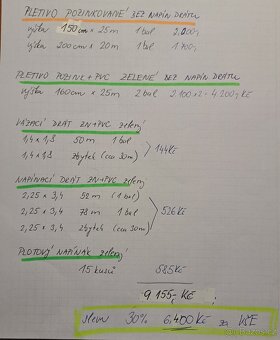 PLETIVO POZINKOVANÉ BEZ NAPÍN. DRÁTU
výška 150 cm x 25 m 1 bal 2.000,-
výška 200 cm x 20 m 1 bal 1.700,-
PLETIVO POZINK + PVC ZELENÉ BEZ NAPÍN. DRÁTU
výška 100 cm x 25 m 2 bal 2.100 x 2 = 4.200,- Kč
VÁZACÍ DRÁT ZN+PVC zelený
1,4 x 1,8 50 m 1 bal
1,4 x 1,8 zbytek (cca 30m) 144 Kč
NAPÍNACÍ DRÁT ZN+PVC zelený
2,25 x 3,4 52 m (1 bal)
2,25 x 3,4 78 m 1 bal 526 Kč
2,25 x 3,4 zbytek (cca 30m)
PLOTOVÝ NAPÍNÁK zelený
15 kusů 585 Kč
9 155,- Kč
sleva 30% 6.400 Kč za VŠE